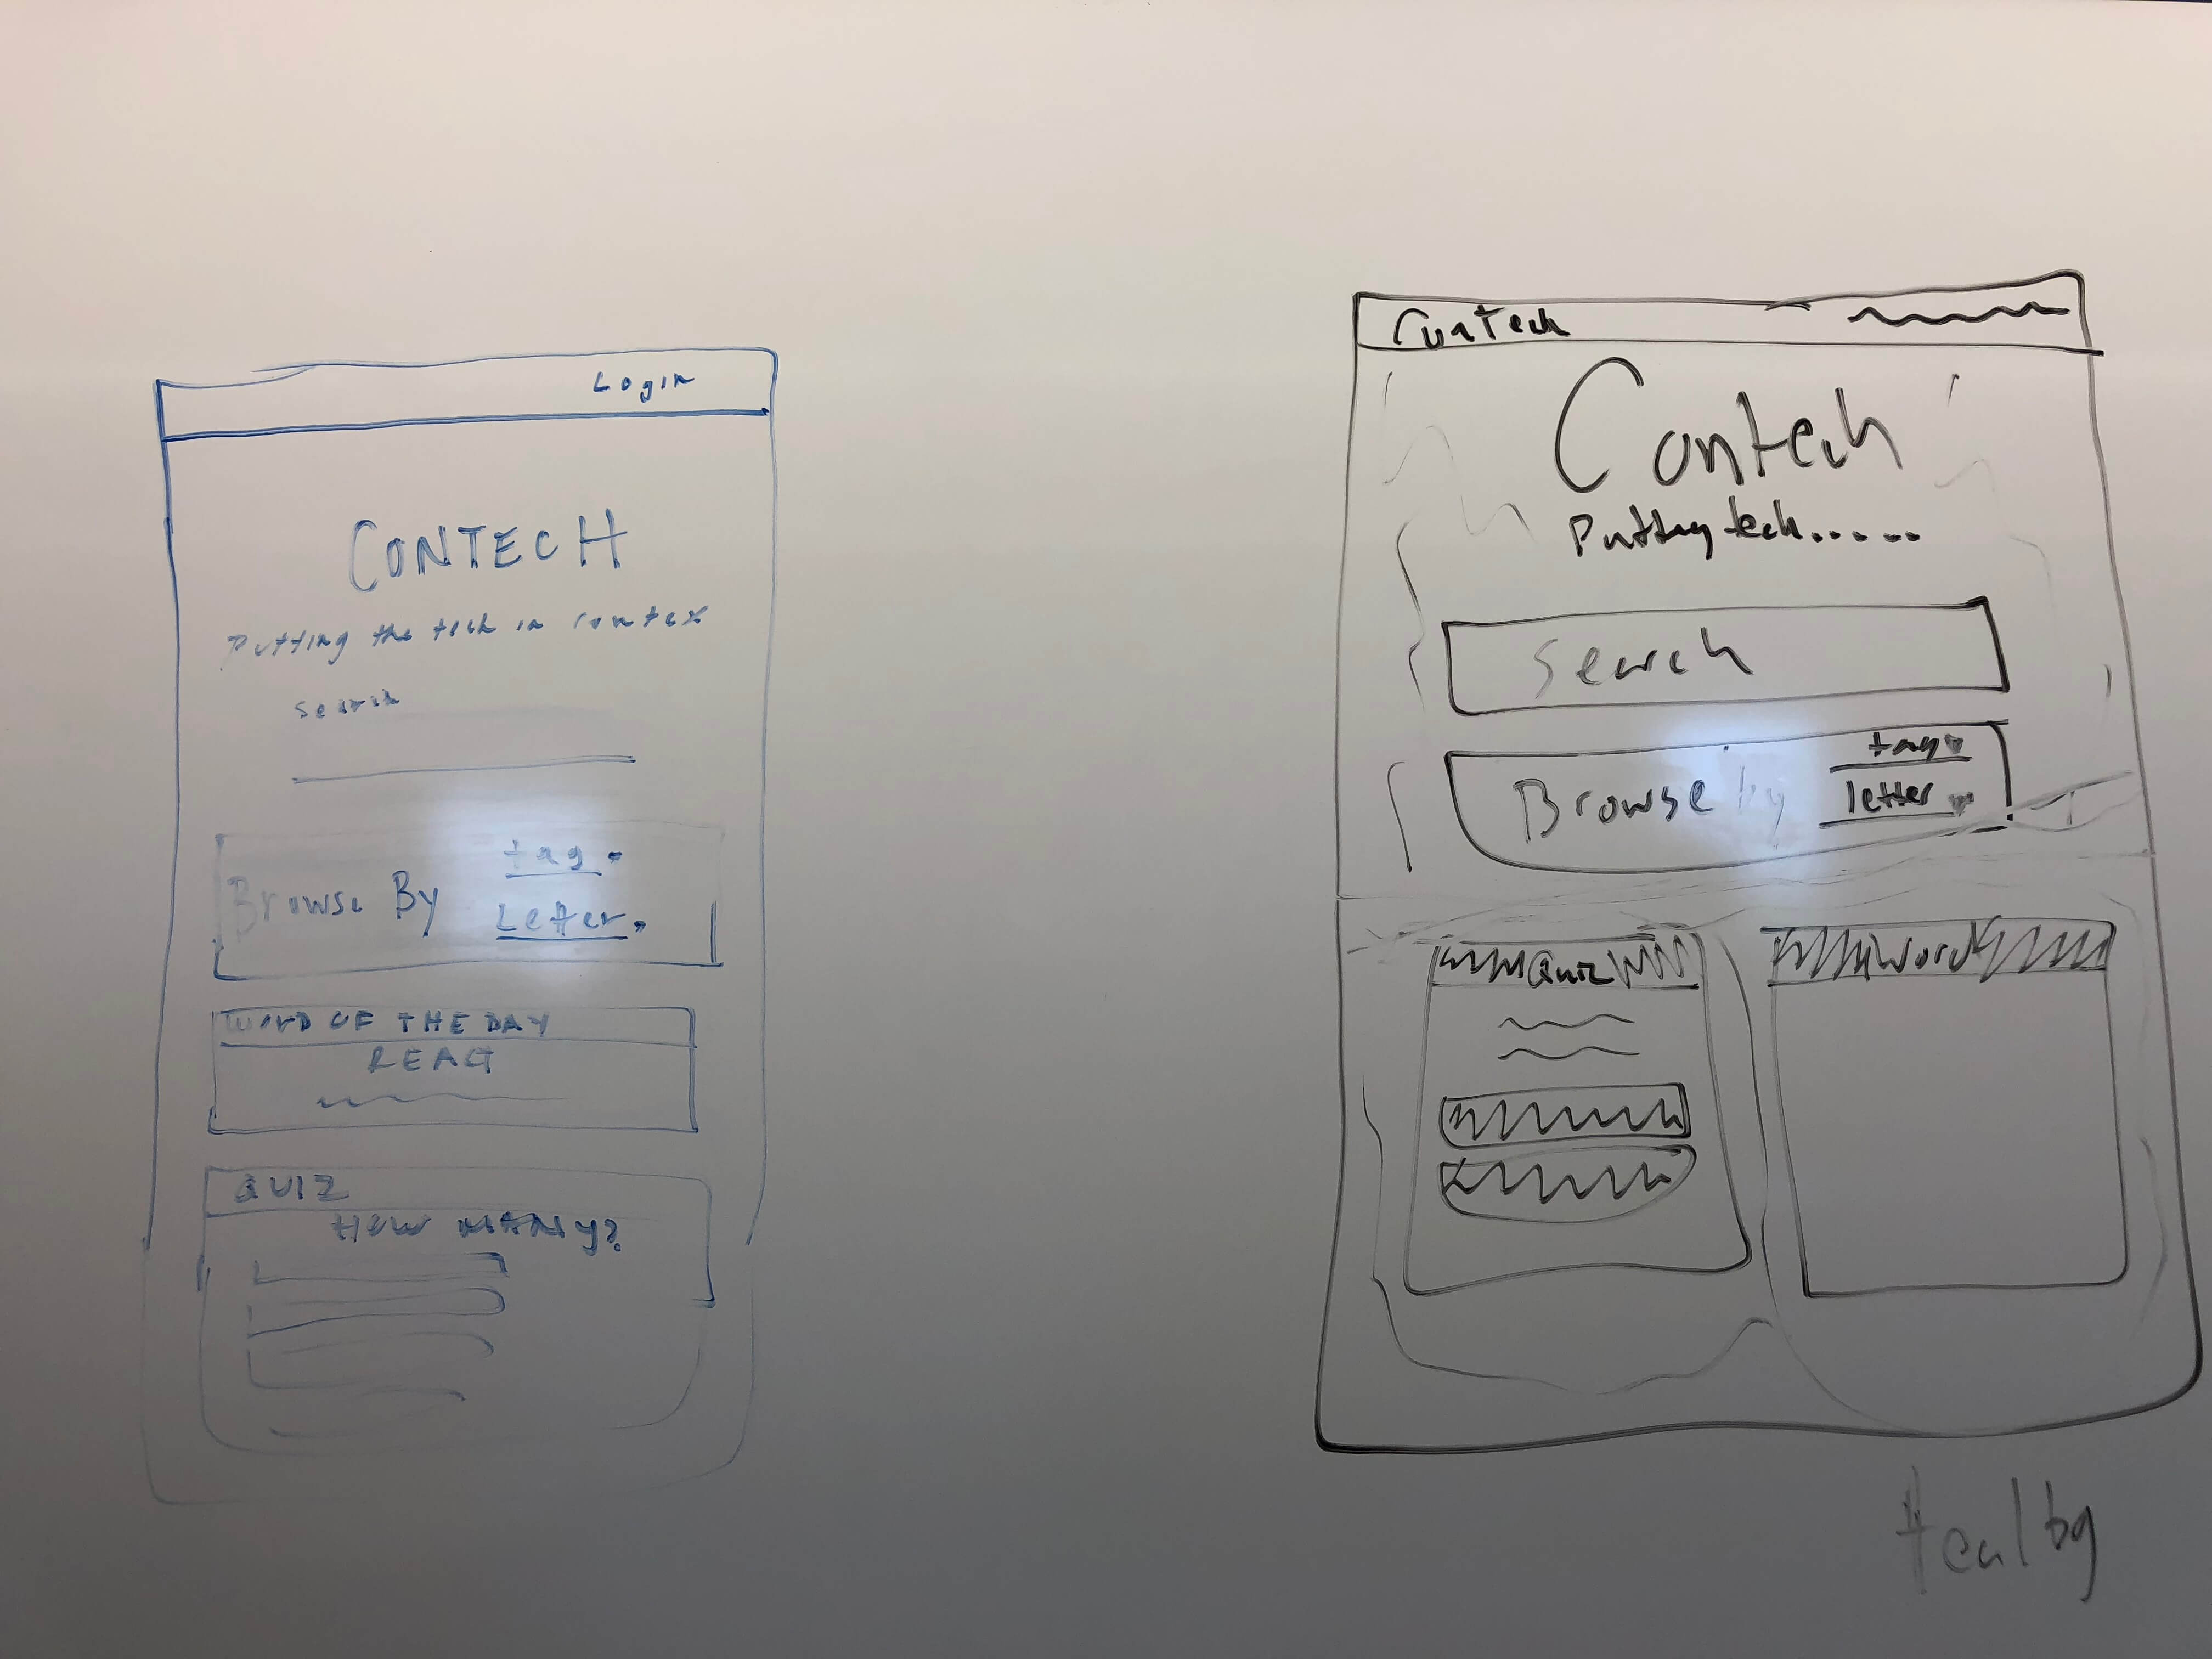 Login
CONTECH
Putting the tech in contex
search
Browse By
tag
Letter
WORD OF THE DAY
REACT
QUIZ
HOW MANY?
Contech
Contech
Putting tech......
Search
Browse by
tag
letter
Quiz
Word
teal bg